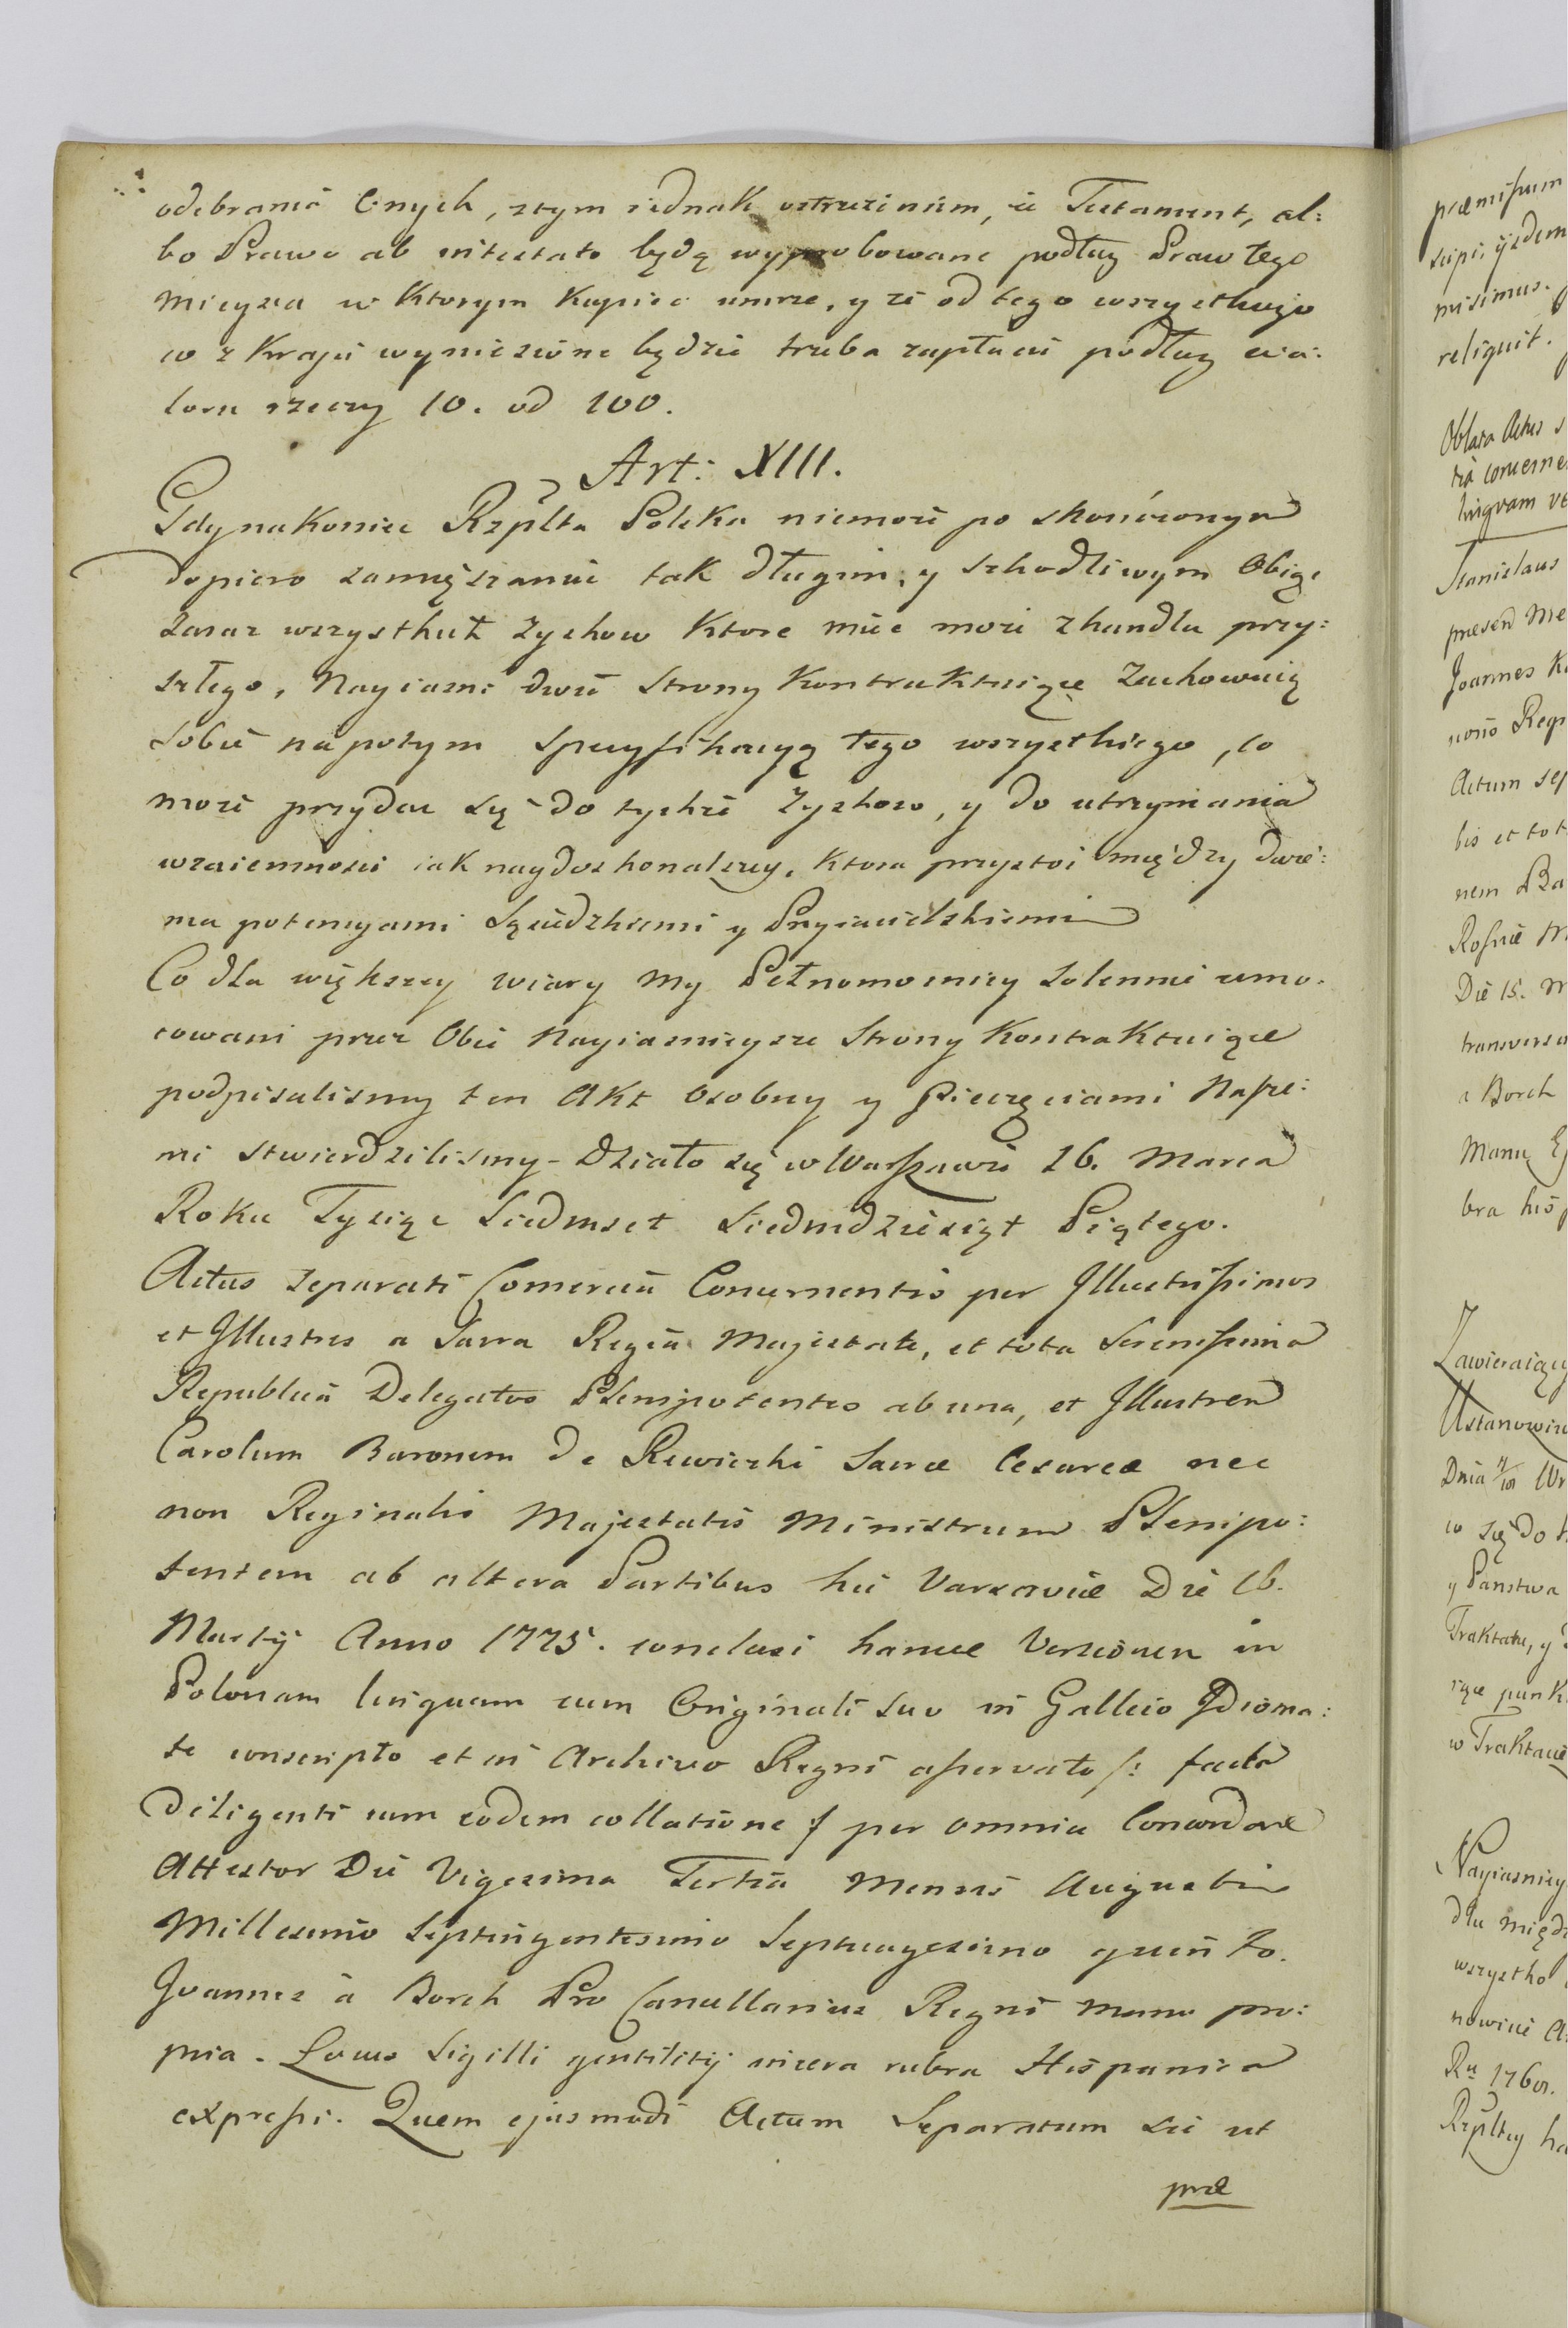 odebrania Onych, ztym iednak ostrzezeniem, ze Testament, al:
bo Prawo ab intestato będą wyprobowane podług Praw tego
Mieysca w Ktorym Kupiec umrze, y ze od tego wszystkiego
co z Kraju wyniesione będzie trzeba zapłacić podług wa:
loru rzeczy 10. od 100.
Art: XIII.
Gdy nakoniec Rzplta Polska niemoże po skończonym
dopiero zamięszaniu tak długim, y szkodliwym Obiąć
zaraz wszystkich Zyskow Ktore mieć może z handlu przy:
szłego, Nayiasn: dwie Strony Kontraktuiące Zachowuią
Sobie napotym specyfikacyą tego wszystkiego, co
może przydać się do tychże Zyskow, y do utrzymania
wzaiemności iak naydoskonalszey, Ktora przystoi między dwie:
ma potencyami Sąsiedzkiemi y Przyiacielskiemi
Co dla większey wiary My Pełnomocnicy Solennie umo:
cowani przez Obie Nayiasnieysze Strony Kontraktuiące
podpisalismy ten Akt Osobny y Pieczęciami Nasze:
mi stwierdzilismy - Działo się w Warszawie 16. Marca
Roku Tysiąc Siedmset Siedmdziesiąt Piątego.
Actus Separati Comercia Concernentis per Illustrissimos
et Illustres a Sacra Regia Majestate, et tota Serenissima
Republica Delegatos Plenipotentes ab una, et Illustrem
Carolum Baronem de Rewiczki Sacræ Cesareæ nec
non Reginalis Majestatis Ministrum Plenipo:
tentem ab altera Partibus hic Varsaviæ Die 16.
Martij Anno 1775. conclusi hancce Versionem in
Polonam linguam cum Originali suo in Gallico Idioma:
te conscripto et in Archivo Regni asservato /: facta
diligenti cum eodem collatione :/ per omnia Concordare
Attestor Die Vigesima Tertia Mensis Augusti
Millesimo Septingentesimo Septuagesimo quinto.
Joannes à Borch Pro Cancellarius Regni manu pro:
pria. Locus Sigilli gentilitij in cera rubra Hispanica
expressi. Quem ejusmodi Actum Separatum sic ut
præ
præmissum
suspi: ijsdem
misimus.
reliquit.
Oblata Actus s
lingvam ve
Stanislaus
præsen Me
Joannes K
Actum sep
bis et tot
nem
Die 15. M
transversa
a Borch
Manu
bra his
Zawieraiący
Ustanowie
Dnia
w się do
y Panstwa
Traktatu, y
iące punk
w Traktacie
Nayiasniey
dlu międz
wszystko
nowienie
Ru 176
Rzpltey